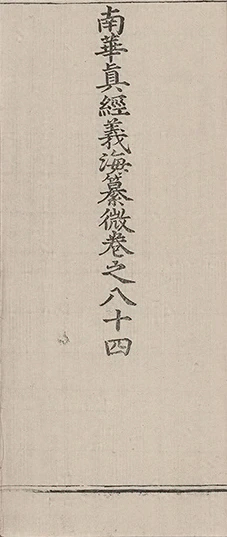 南華眞經義海纂微卷之八十四